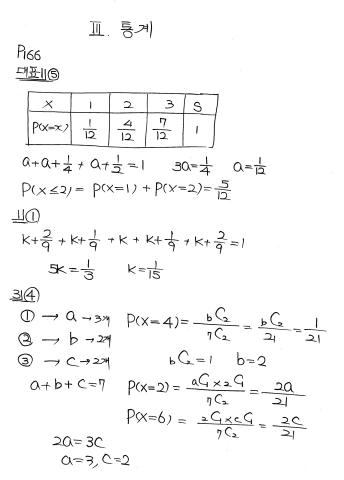 Ⅲ. 통계
P166
대표 11 ⑤
X 1 2 3 S
P(X=x) 1/12 4/12 7/12 1
a+a+1/4+a+1/2=1 3a=1/4 a=1/12
P(X≤2)= P(X=1)+P(X=2)=5/12
11 ①
k+2/9+k+1/9+k+k+1/9+k+2/9=1
5k=1/3 k=1/15
31 ④
① → a → 3개 P(X=4)= bC2/7C2 = bC2/21 = 1/21
② → b → 2개
③ → c → 2개 bC2=1 b=2
a+b+c=7 P(X=2)= aC1×2C1/7C2 = 2a/21
P(X=6)= 2C1×cC1/7C2 = 2c/21
2a=3c
a=3, c=2